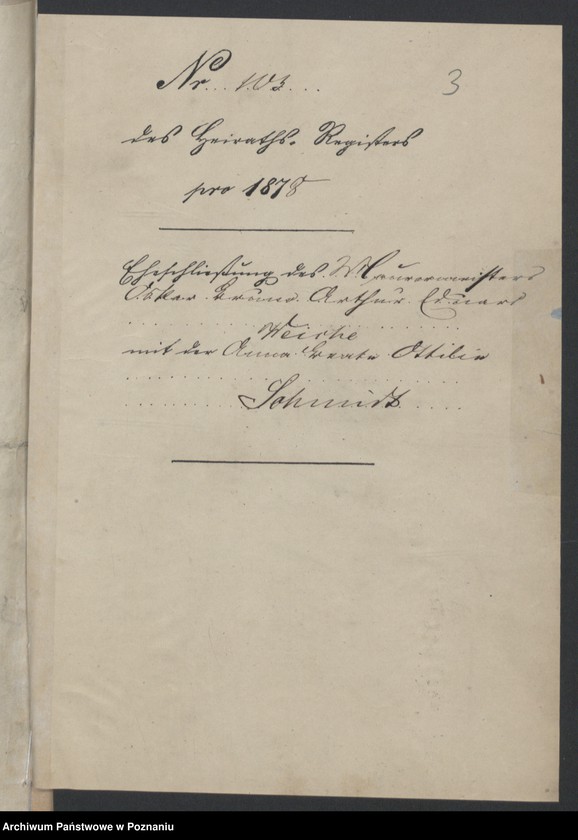 Nr. 103.
3
des Heiraths-Registers
pro 1878
Eheschließung des Maurermeisters
Oskar Bruno Arthur Eduard
Weiche
mit der Anna Beate Ottilie
Schmidt
Archiwum Państwowe w Poznaniu